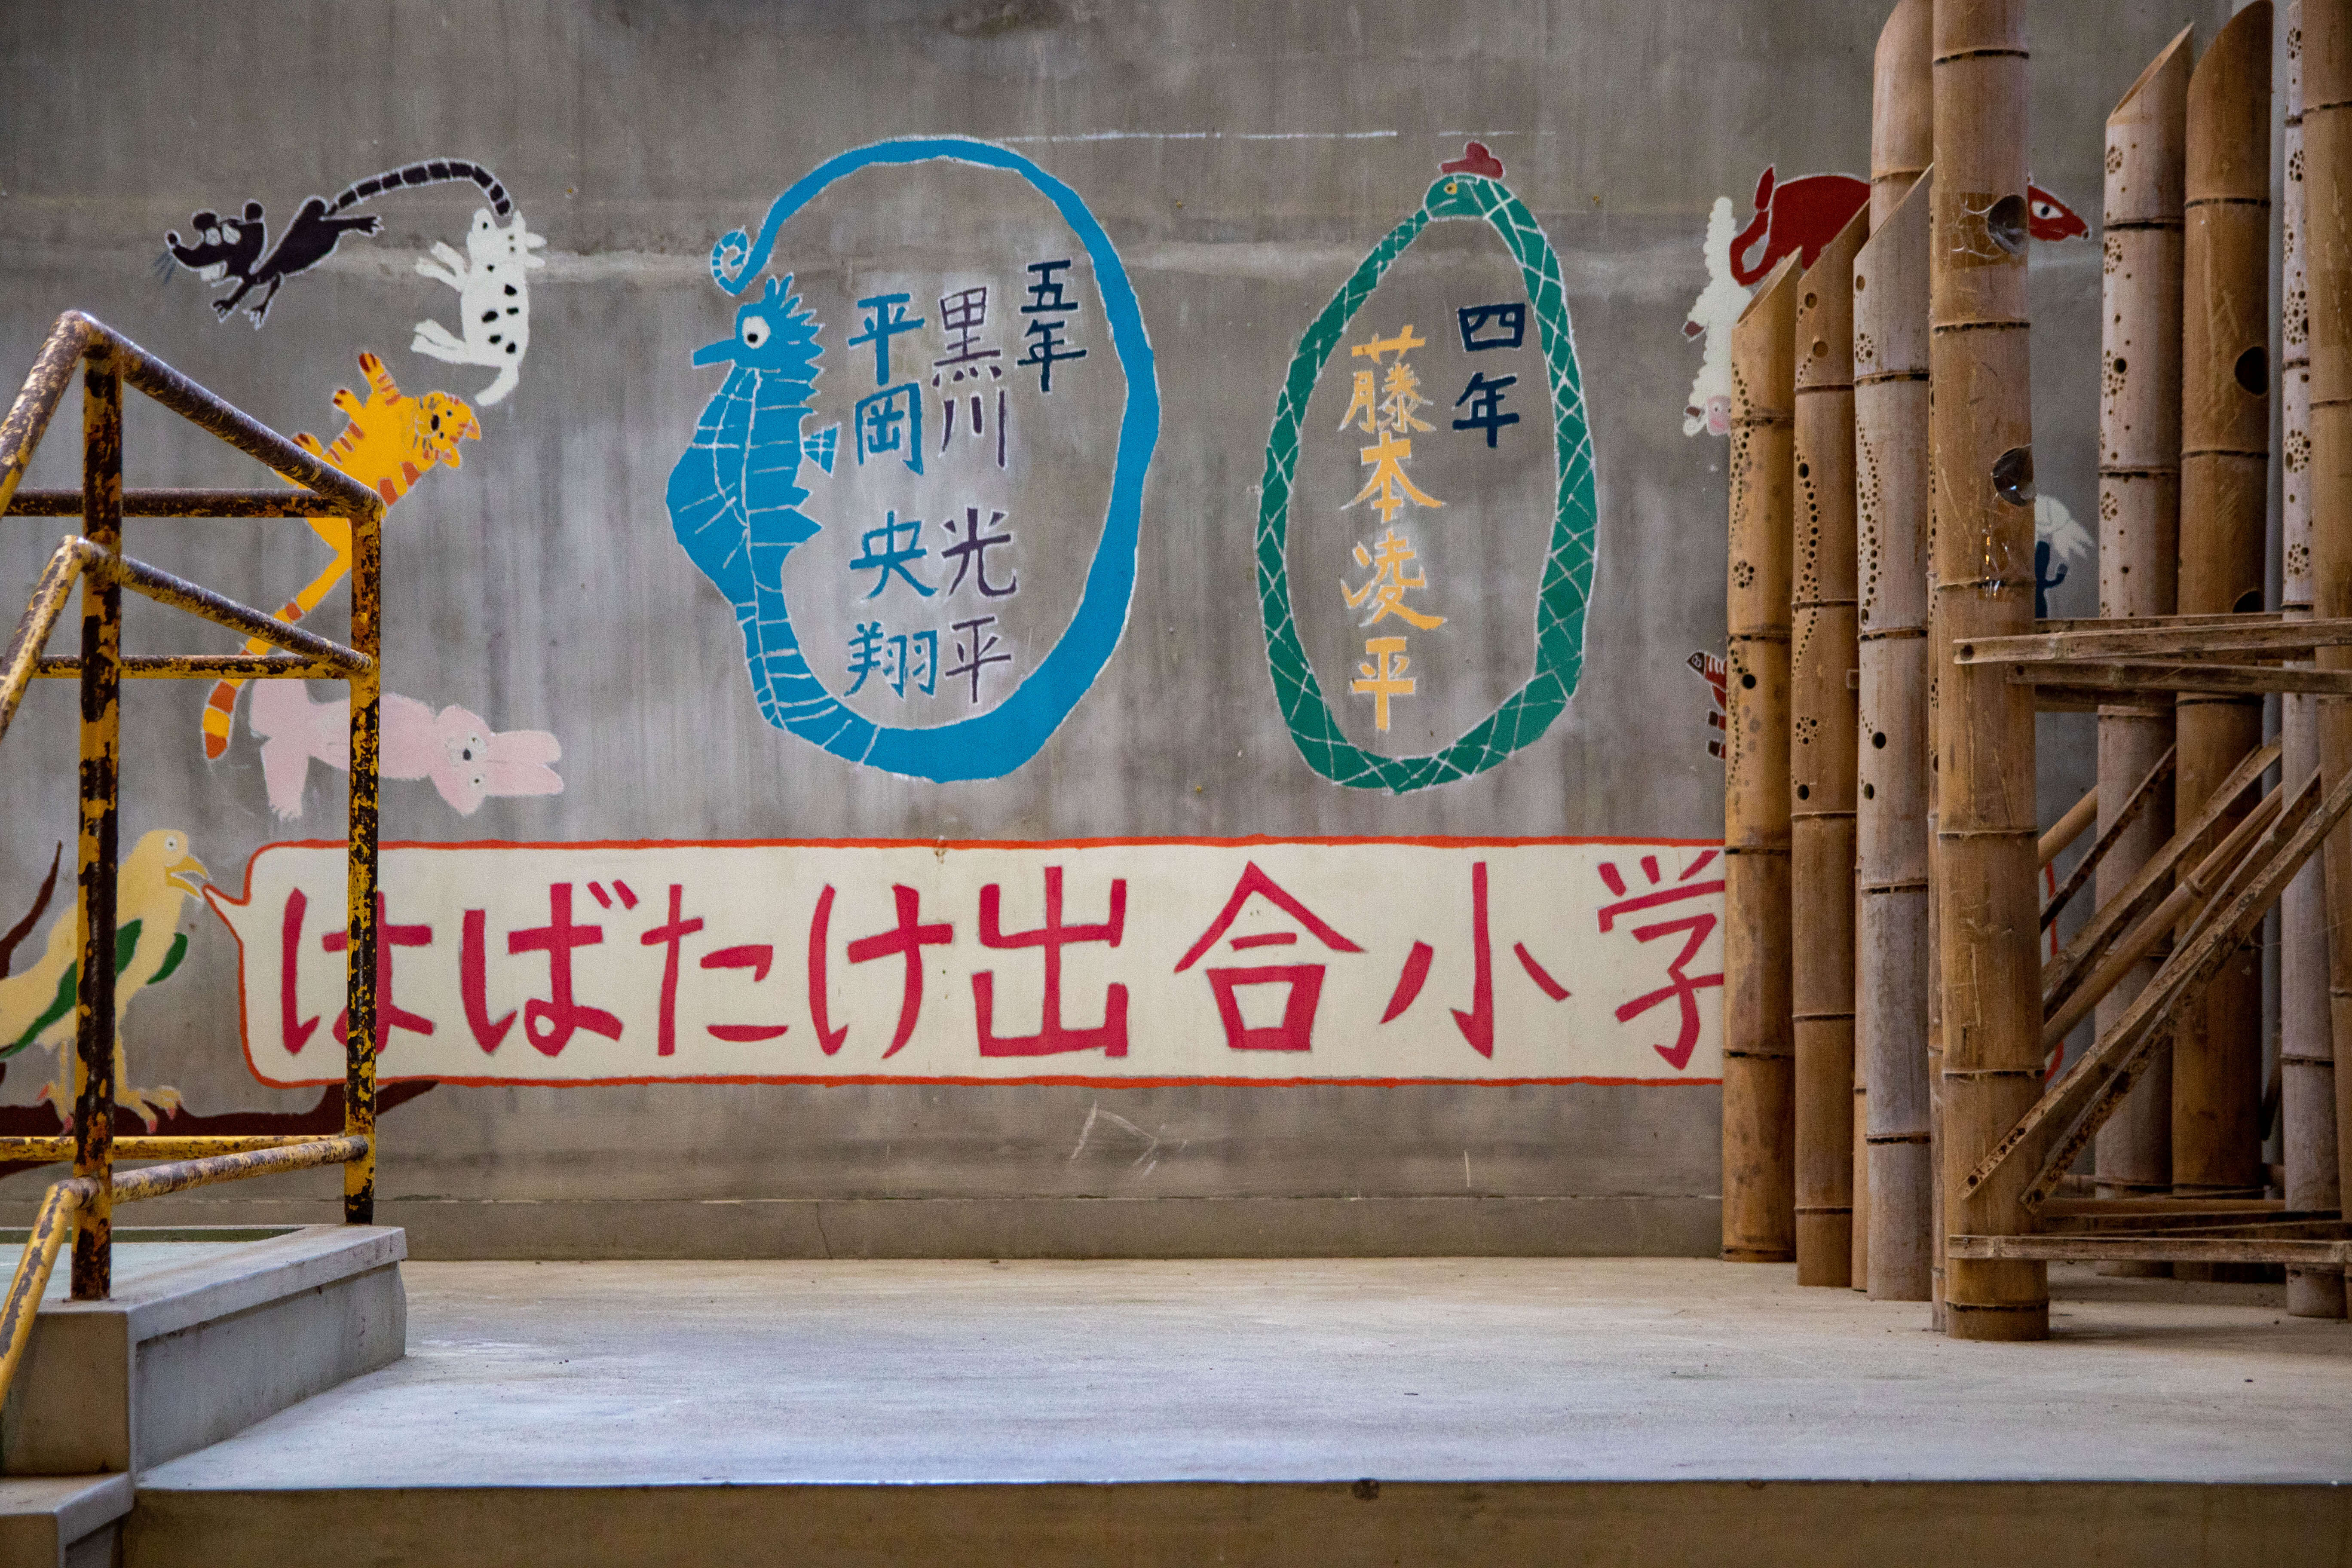 五年
黒川 光平
平岡 央翔
四年
藤本凌平
はばたけ出合小学